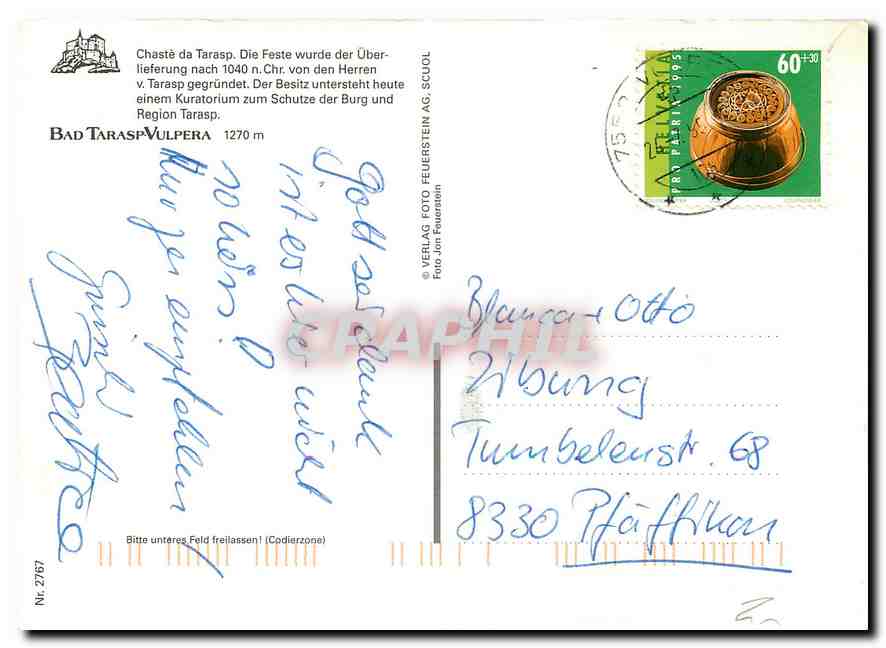 Chastè da Tarasp. Die Feste wurde der Über-
lieferung nach 1040 n. Chr. von den Herren
v. Tarasp gegründet. Der Besitz untersteht heute
einem Kuratorium zum Schutze der Burg und
Region Tarasp.
BAD TARASP-VULPERA 1270 m
Gott sei dank
ist es hier nicht
schön!
Nur zu empfehlen!
© VERLAG FOTO FEUERSTEIN AG, SCUOL
Foto Jon Feuerstein
HELVETIA
PRO PATRIA 1995
60+30
7552 V
CRAPHIL
Blanca + Otto
Zibung
Tumbelenstr. 68
8330 Pfäffikon
Bitte unteres Feld freilassen! (Codierzone)
Nr. 2767